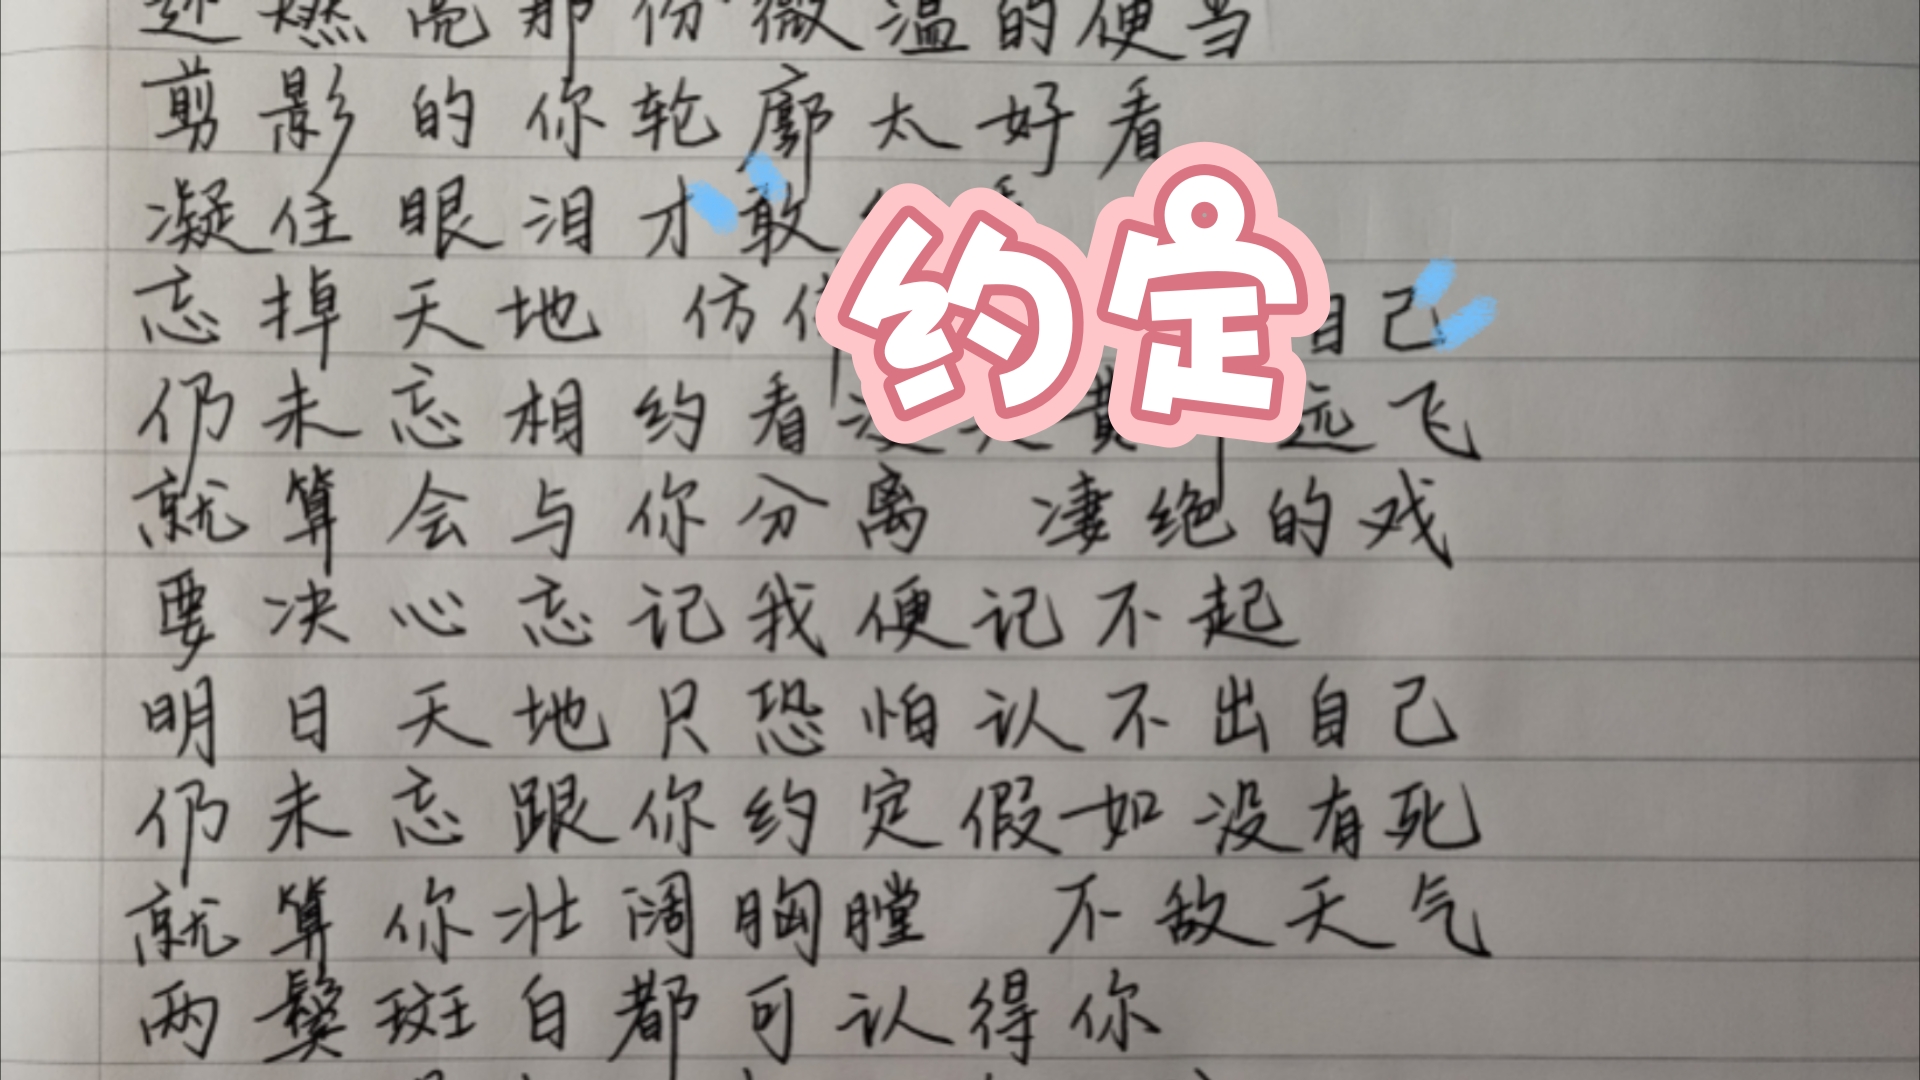 迹燃亮那份微温的便当
剪影的你轮廓太好看
凝住眼泪才敢
忘掉天地 仿 自己
约定
仍未忘相约看 黄 远飞
就算会与你分离 凄绝的戏
要决心忘记我便记不起
明日天地只恐怕认不出自己
仍未忘跟你约定假如没有死
就算你壮阔胸膛 不敌天气
两鬓斑白都可认得你